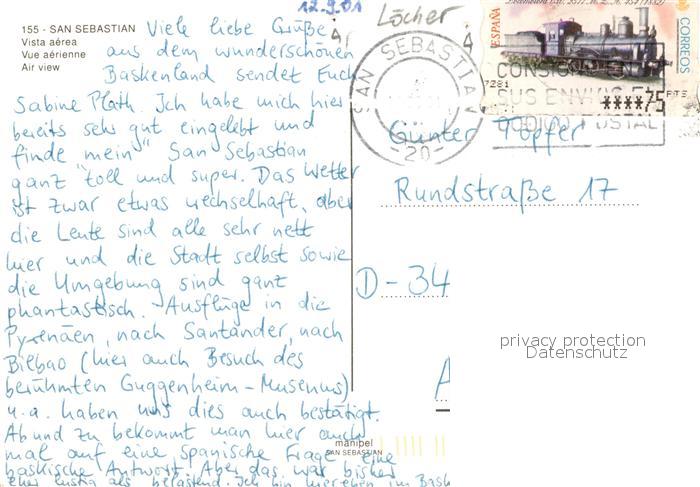 12.9.01
Löcher
155 - SAN SEBASTIAN
Vista aérea
Vue aérienne
Air view
Viele liebe Grüße
aus dem wunderschönen
Baskenland sendet Euch
Sabine Plath. Ich habe mich hier
bereits sehr gut eingelebt und
finde "mein" San Sebastian
ganz toll und super. Das Wetter
ist zwar etwas wechselhaft, aber
die Leute sind alle sehr nett
hier und die Stadt selbst sowie
die Umgebung sind ganz
phantastisch. Ausflüge in die
Pyrenäen, nach Santander, nach
Bilbao (hier auch Besuch des
berühmten Guggenheim-Museums)
u.a. haben uns dies auch bestätigt.
Ab und zu bekommt man hier auch
mal auf eine spanische Frage eine
baskische Antwort. Aber das war bisher
eher lustig als belastend. Ich bin hier eben im Bask
manipel
SAN SEBASTIAN
ESPAÑA
CORREOS
SAN SEBASTIAN
-20-
7281
****75 PTS
CONSIGNE E
SUS ENVIOS E
CODIGO POSTAL
Günter Töpfer
Rundstraße 17
D-34
privacy protection
Datenschutz